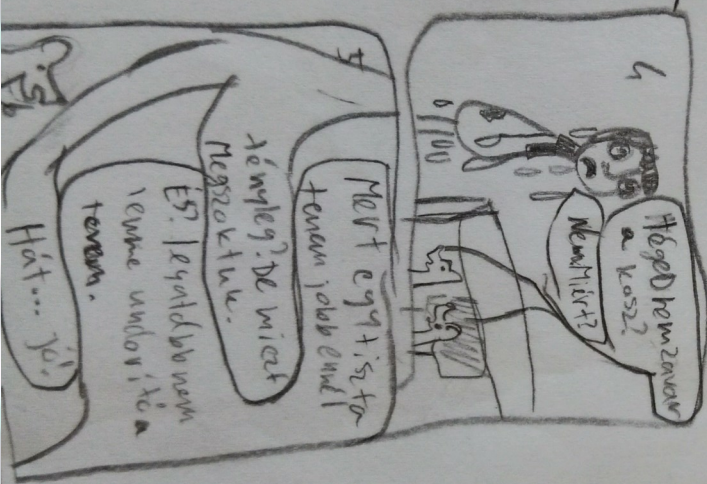 4
TégeD nem zavar
a kosz?
Nem.Miért?
5
Mert egy tiszta
terem jobb ennél
tényleg? De miért
Megszoktuk.
És? legalább nem
lenne undorító a
terem.
Hát... jó.